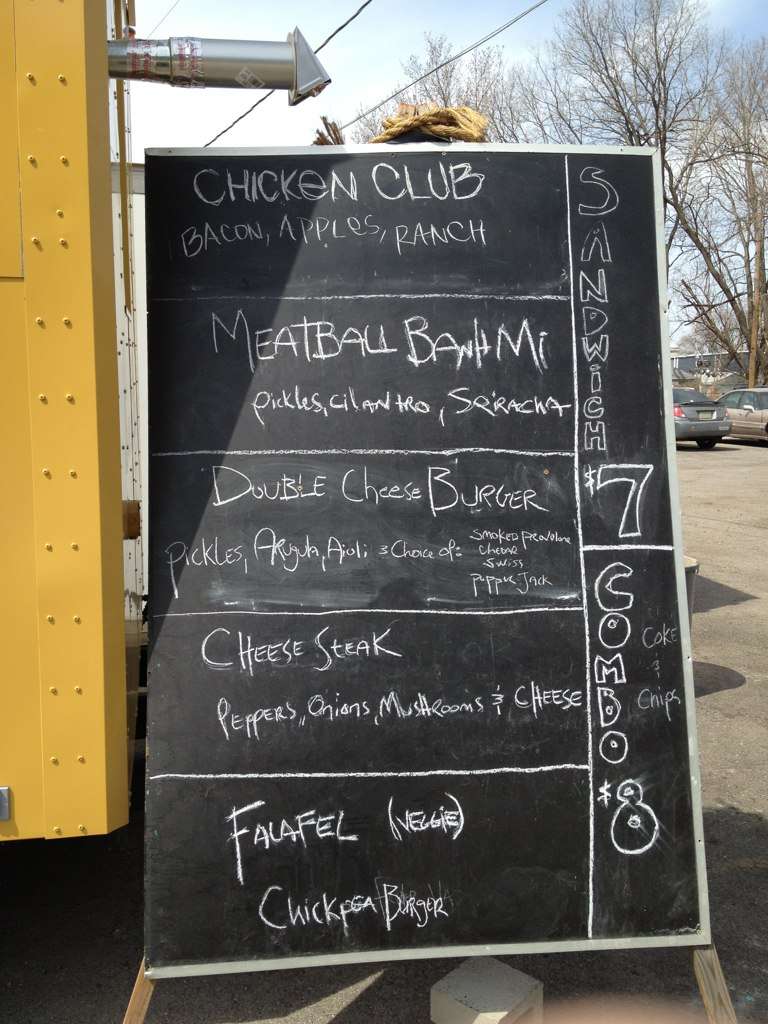 CHICKEN CLUB
BACON, APPLES, RANCH
MEATBALL BANH MI
pickles, cilantro, SRIRACHA
DOUBLE Cheese BURGER
pickles, Arugula, Aioli & Choice of:
smoked provolone
chedar
swiss
pepper Jack
CHEESE STEAK
PEPPERS, Onions, MUSHROOMS & CHEESE
FALAFEL (VEGGIE)
Chickpea Burger
SANDWICH
$7
COMBO
Coke
&
Chips
$8